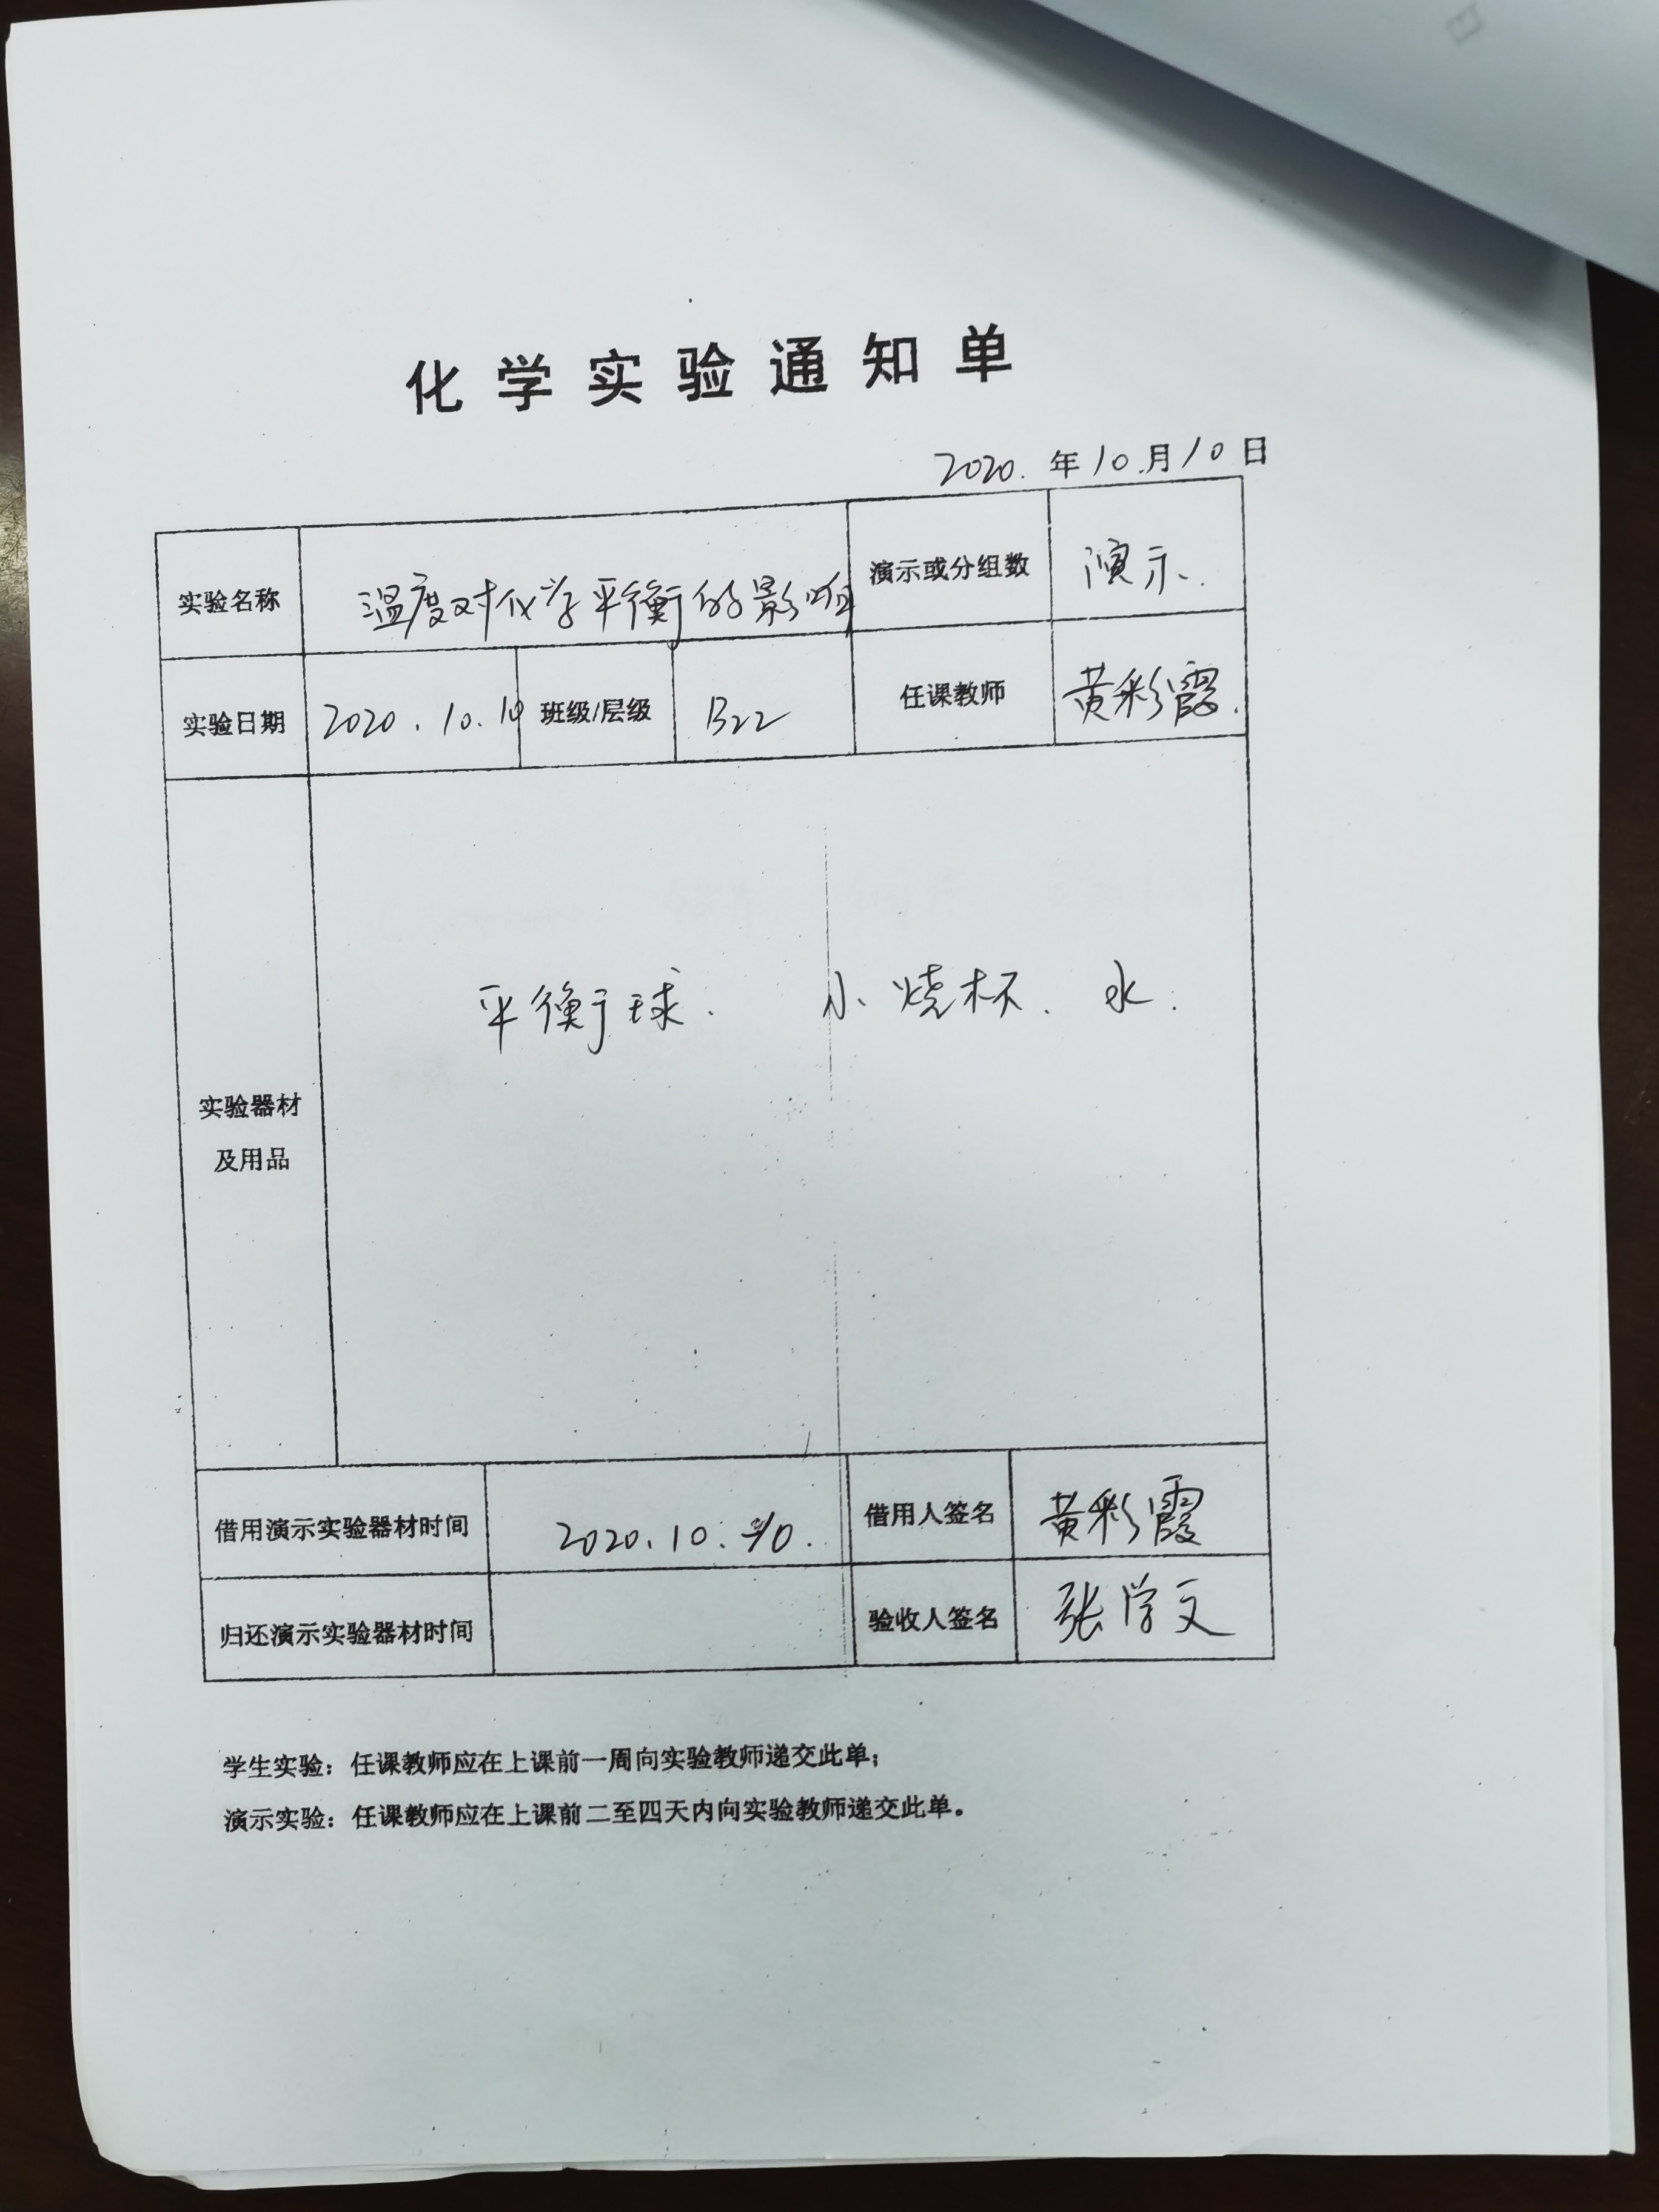 化学实验通知单
2020. 年 10. 月 10 日
实验名称 温度对化学平衡的影响 演示或分组数 演示.
实验日期 2020.10.10 班级/层级 B22 任课教师 黄彩霞.
实验器材
及用品
平衡球. 小烧杯. 水.
借用演示实验器材时间 2020.10.10. 借用人签名 黄彩霞
归还演示实验器材时间 验收人签名 张学文
学生实验：任课教师应在上课前一周向实验教师递交此单；
演示实验：任课教师应在上课前二至四天内向实验教师递交此单。